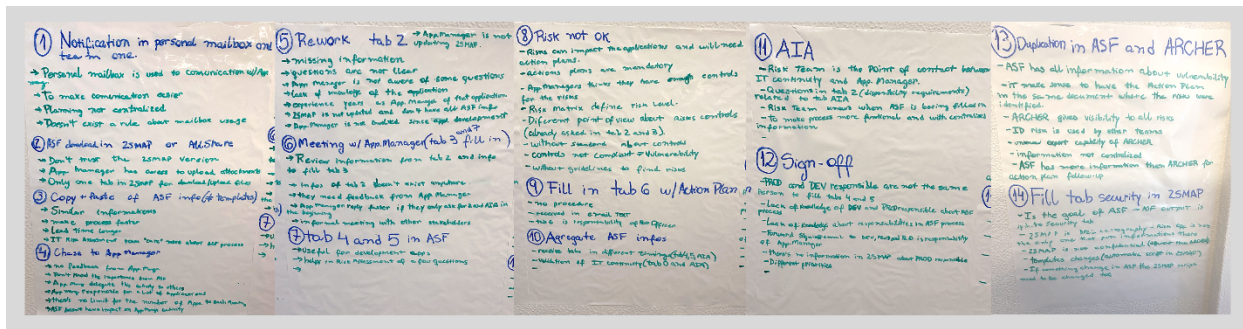 ① Notification in personal mailbox and
team in one.
→ Personal mailbox is used to comunication w/App
→ To make comunication easier
→ Planning not centralized
→ Doesn't exist a rule about mailbox usage
② ASF download in 2SMAP or AllShare
→ Don't trust the 2SMAP version
→ App Manager has access to upload attachments
→ Only one tab in 2SMAP for download/upload files
③ Copy + Paste of ASF info (templates)
→ Similar informations
→ make process faster
→ Lead Time longer
→ IT Risk Assessment team more about ASF process
④ Chase to App Manager
→ no feedback from App
→ App may delegate the activity to others
→ App responsible for a lot of Applications
→ there's no limit for the number of Apps
→ ASF doesn't have impact on App
⑤ Rework tab 2 → App Manager is not
updating 2SMAP.
→ missing information
→ questions are not clear
→ App Manager is not aware of some questions
→ Lack of knowledge of the application
→ experience years as App Manager of that application
→ 2SMAP is not updated and don't have all ASF info
→ App Manager is not since app development
⑥ Meeting w/ App Manager (tab 3 and 7 fill in)
→ Review information from tab 2 and info
to fill tab 3
→ infos of tab 3 doesn't exist anywhere
→ they need feedback from App Manager
→ App Manager reply faster if they only ask for 2 and AIA in
the beginning
→ informal meeting with other stakeholders
⑦ tab 4 and 5 in ASF
→ Useful for development apps
→ helps in Risk Assessment of a few questions
→
⑧ Risk not OK
- Risks can impact the applications and will need
action plans.
- actions plans are mandatory
- App Managers thinks they have enough controls
for the risks
- Risk Matrix define risk level.
- Diferent point of view about risks controls
(already asked in tab 2 and 3).
- without standard about control
- controls not compliant = vulnerability
- without guidelines to find risks
⑨ Fill in tab 6 w/ Action Plan in
- no procedure
- received in email text
- tab 6 is responsibility of
⑩ Agregate ASF infos
- receive tabs in different timings (tab 4,5, AIA)
- Validation of IT continuity (tab 0 and AIA)
⑪ AIA
- Risk Team is the Point of contact between
IT continuity and App. Manager.
- Questions in tab 2 (disponibility requirements)
related to tab AIA
- Risk Team knows when ASF is being filled in
- To make process more funtional and with centralized
information
⑫ Sign-off
- PROD and DEV responsible are not the same
Person to fill tab 4 and 5
- Lack of knowledge of DEV and PROD responsible about ASF
process
- Lack of knowledge about responsabilities in ASF process
- Forward to DEV, and PROD is responsability
of App Manager
- There's no information in 2SMAP about PROD responsible
- Different priorities
⑬ Duplication in ASF and ARCHER
- ASF has all information about vulnerability
- IT make sense to have the Action Plan
in the same document where the risks were
identified.
- ARCHER gives visibility to all risks
- ID risk is used by other teams
- export capability of ARCHER
- information not centralized
- ASF has more information then ARCHER for
action plan followup
⑭ Fill tab security in 2SMAP
- Is the goal of ASF - ASF output is
input to Security tab
- 2SMAP is
the only one that can informations there
- 2SMAP is non confidential
- templates changes (automatic script in 2SMAP)
- If something change in ASF the 2SMAP
need to be changed too